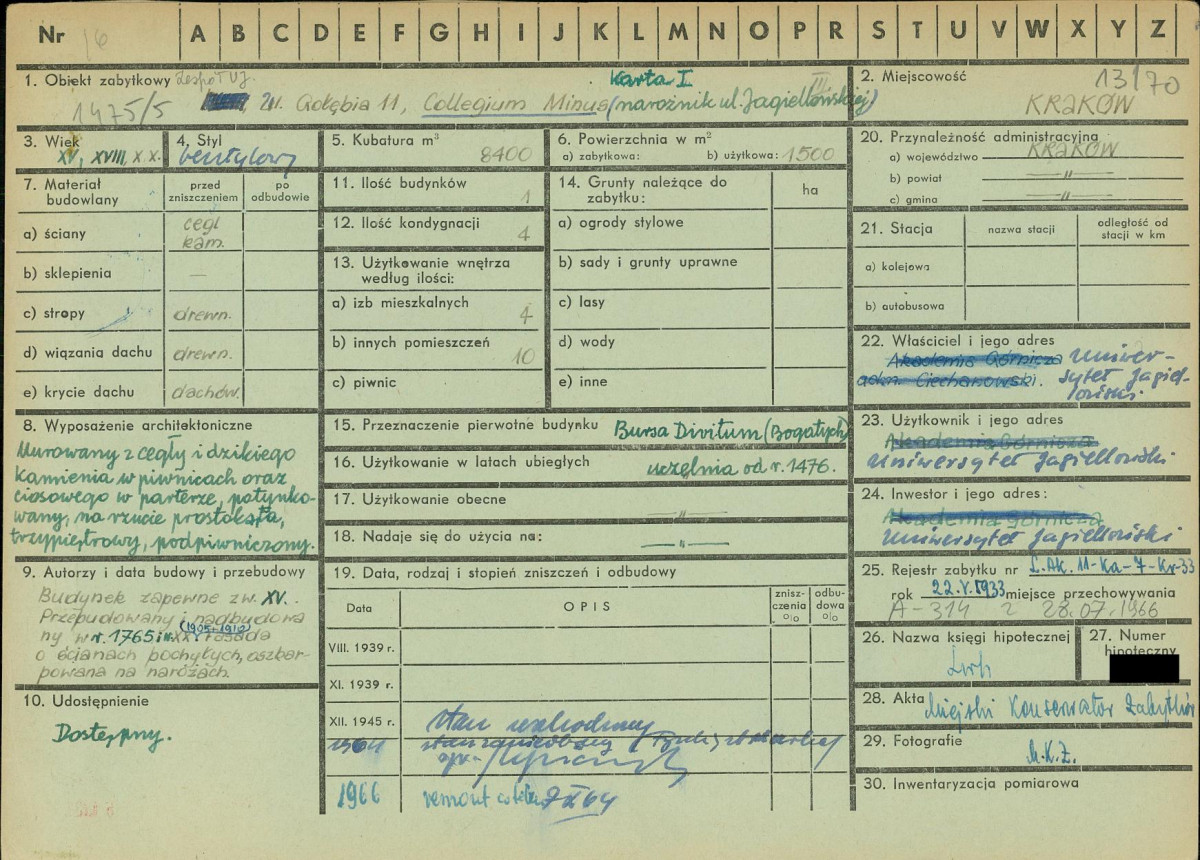 Nr 16 A B C D E F G H I J K L M N O P R S T U V W X Y Z
1. Obiekt zabytkowy Zespół UJ. Karta I III
1475/5 ul. Gołębia 11, Collegium Minus (narożnik ul. Jagiellońskiej)
2. Miejscowość 13/70
KRAKÓW
3. Wiek
XV, XVIII, XX.
4. Styl
bezstylowy
5. Kubatura m³
8400
6. Powierzchnia w m²
a) zabytkowa: b) użytkowa: 1500
20. Przynależność administracyjna
a) województwo KRAKÓW
b) powiat —"—
c) gmina —"—
7. Materiał budowlany
przed zniszczeniem
po odbudowie
a) ściany cegł. kam.
b) sklepienia —
c) stropy drewn.
d) wiązania dachu drewn.
e) krycie dachu dachów.
11. Ilość budynków 1
12. Ilość kondygnacji 4
13. Użytkowanie wnętrza
według ilości:
a) izb mieszkalnych 4
b) innych pomieszczeń 10
c) piwnic
14. Grunty należące do
zabytku:
ha
a) ogrody stylowe
b) sady i grunty uprawne
c) lasy
d) wody
e) inne
21. Stacja
nazwa stacji
odległość od
stacji w km
a) kolejowa
b) autobusowa
22. Właściciel i jego adres
Akademia Górnicza Uniwer-
adm. Ciechanowski. sytet Jagiel-
loński
8. Wyposażenie architektoniczne
Murowany z cegły i dzikiego
kamienia w piwnicach oraz
ciosowego w parterze, potynko-
wany, na rzucie prostokąta,
trzypiętrowy, podpiwniczony.
15. Przeznaczenie pierwotne budynku Bursa Divitum (Bogatych)
16. Użytkowanie w latach ubiegłych uczelnia od r. 1476.
17. Użytkowanie obecne —"—
18. Nadaje się do użycia na: —"—
23. Użytkownik i jego adres
Akademia Górnicza
Uniwersytet Jagielloński
24. Inwestor i jego adres:
Akademia Górnicza
Uniwersytet Jagielloński
9. Autorzy i data budowy i przebudowy
Budynek zapewne z w. XV.
Przepudowany i nadbudowa
(1905-1910)
ny w r. 1765 i w XX fasada
o ścianach pochyłych, oszkar-
powana na narożach.
10. Udostępnienie
Dostępny.
19. Data, rodzaj i stopień zniszczeń i odbudowy
Data
OPIS
znisz-
czenia
%
odbu-
dowa
%
VIII. 1939 r.
XI. 1939 r.
XII. 1945 r.
1964
1966 remont 7 XI 64
25. Rejestr zabytku nr L.Ak. 11-Ka-7-Kr-33
rok 22.V.1933 miejsce przechowywania
A-314 z 28.07.1966
26. Nazwa księgi hipotecznej
Lwh
27. Numer
hipoteczny
28. Akta Miejski Konserwator Zabytków
29. Fotografie
M.K.Z.
30. Inwentaryzacja pomiarowa